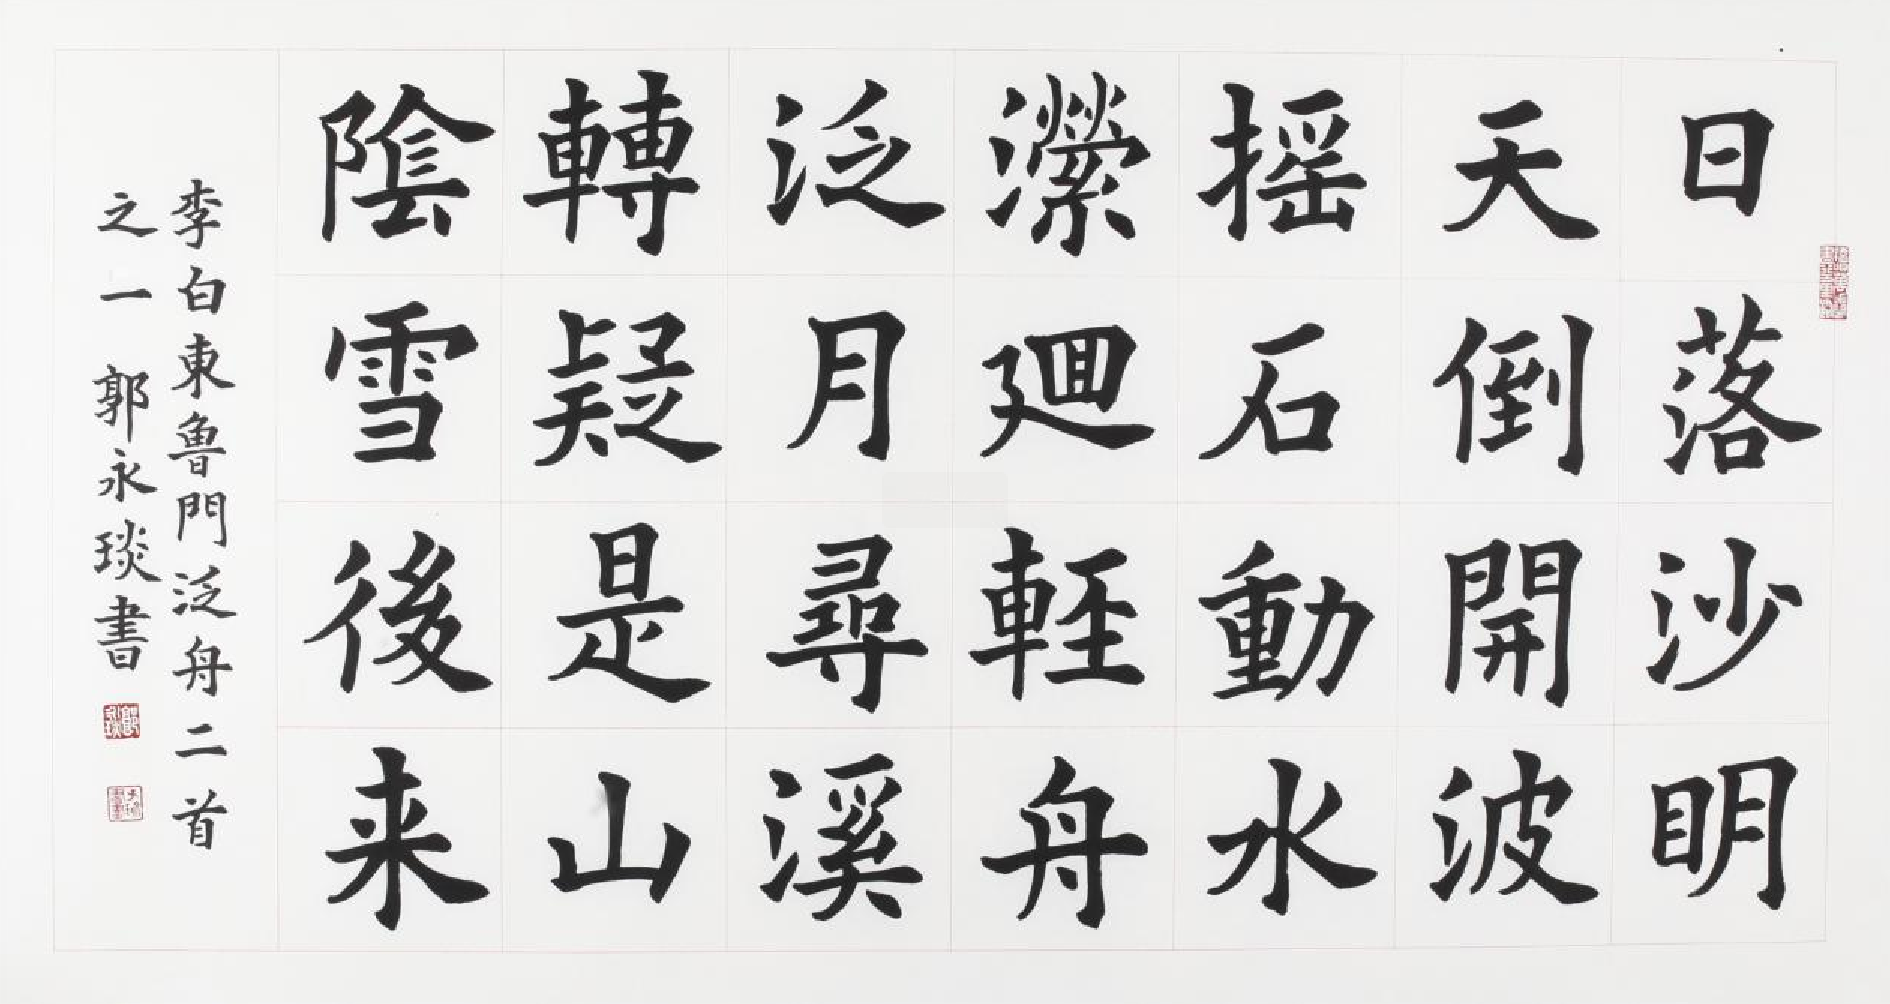 日落沙明
天倒開波
摇石動水
瀠廻輕舟
泛月尋溪
轉疑是山
陰雪後来
李白東魯門泛舟二首
之一 郭永琰書